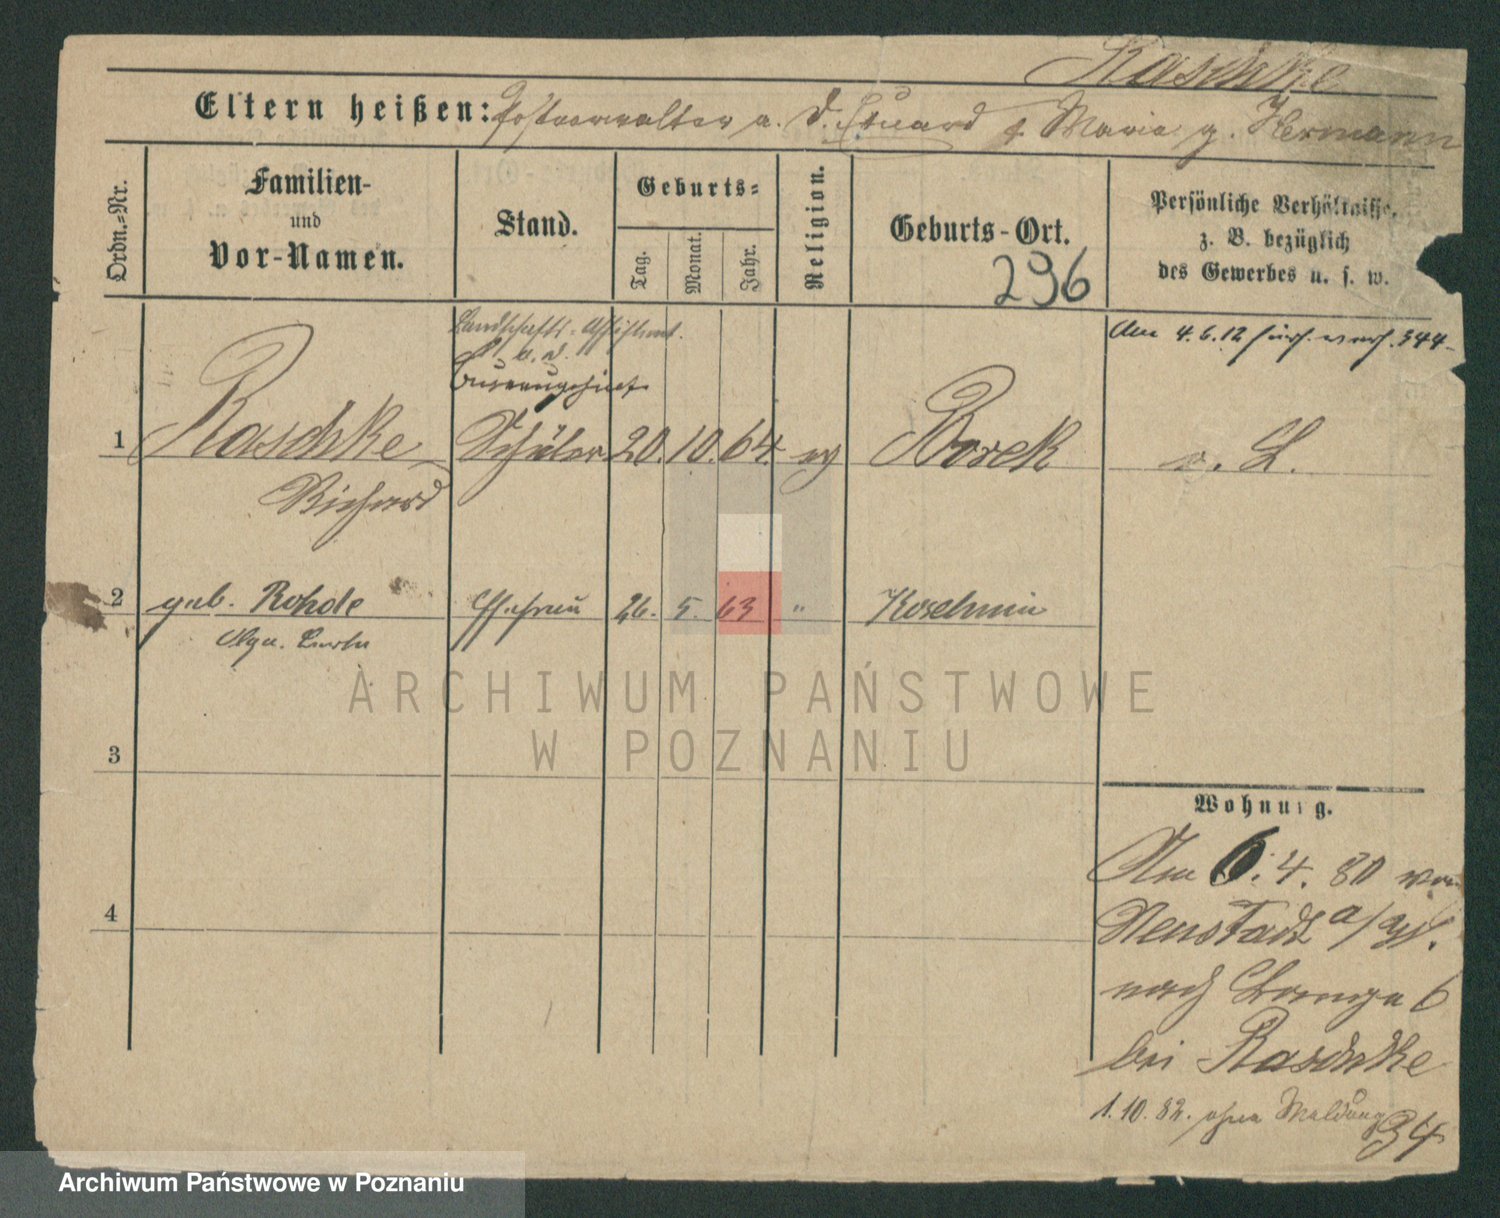 Raschke
Eltern heißen: Postverwalter a. D. Eduard & Marie g. Hermann
Ordn.-Nr.
Familien-
und
Vor-Namen.
Stand.
Geburts-
Tag.
Monat.
Jahr.
Religion.
Geburts-Ort.
296
Persönliche Verhältnisse,
z. B. bezüglich
des Gewerbes u. s. w.
Landschafts-Assistent.
a. d.
Am 4.6.12 344
1 Raschke Schüler 20. 10. 64. ev Borek v. L.
Richard
2 geb. Rohde Ehefrau 26. 5. 63 " Koschmin
Olga
3
4
Wohnung.
Am 6. 4. 80 von
Neustadt a/W.
nach Lange 6
bei Raschke
1. 10. 82. ohne Meldung
34
ARCHIWUM PAŃSTWOWE
W POZNANIU
Archiwum Państwowe w Poznaniu